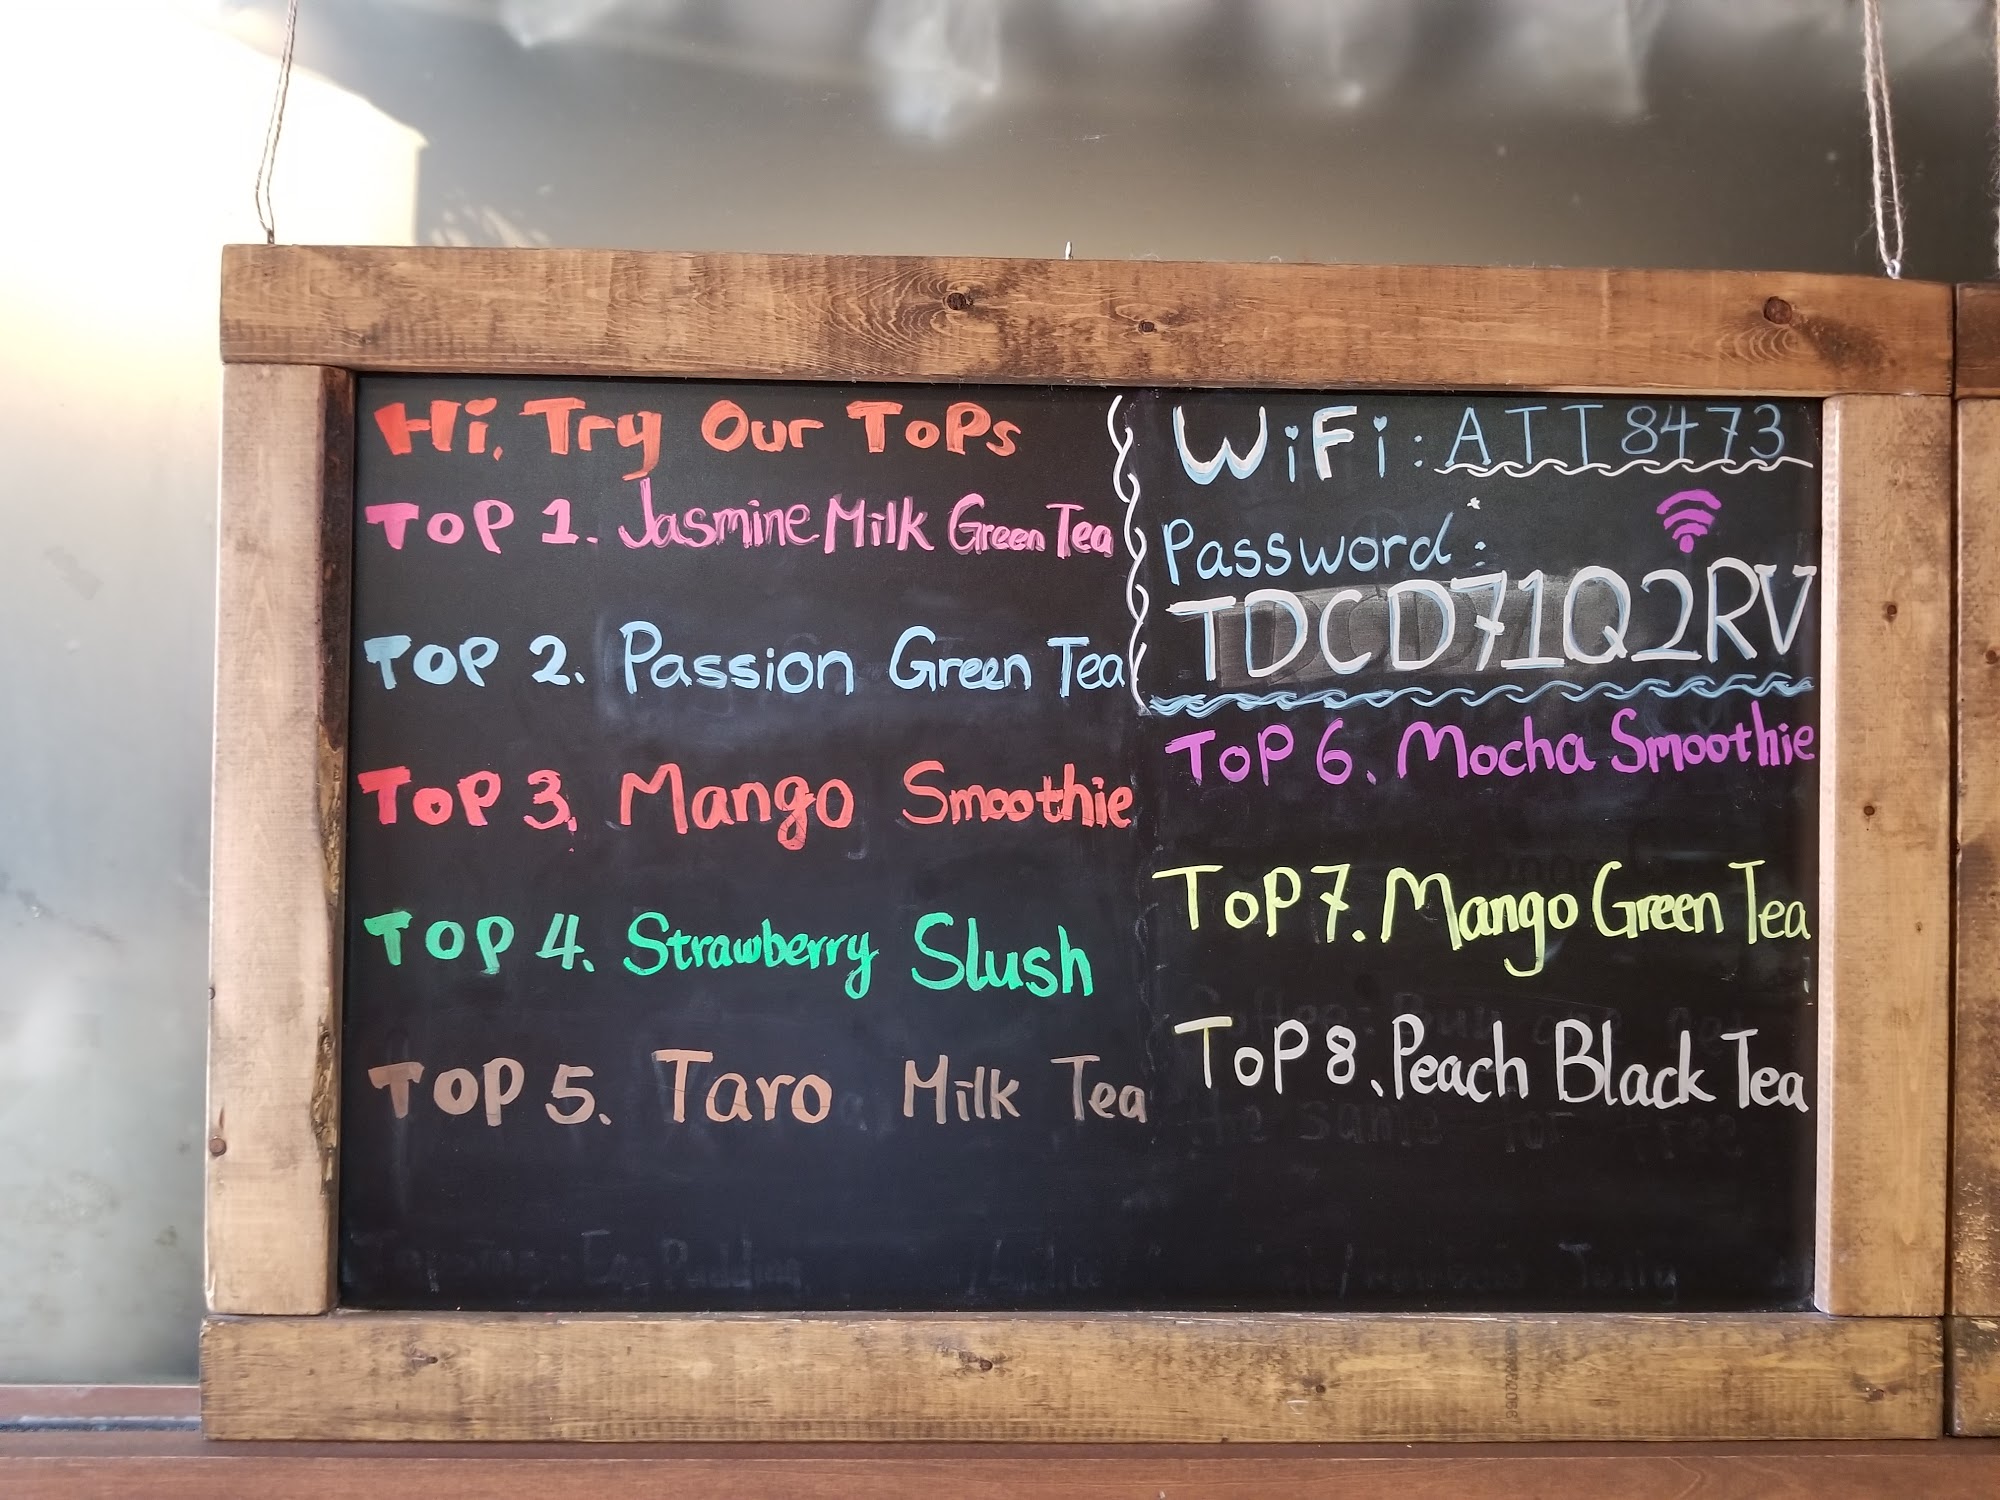 Hi, Try Our ToPs
ToP 1. Jasmine Milk Green Tea
ToP 2. Passion Green Tea
ToP 3. Mango Smoothie
ToP 4. Strawberry Slush
ToP 5. Taro Milk Tea
WiFi: ATT8473
Password:
TDCD71Q2RV
ToP 6. Mocha Smoothie
ToP 7. Mango Green Tea
ToP 8. Peach Black Tea